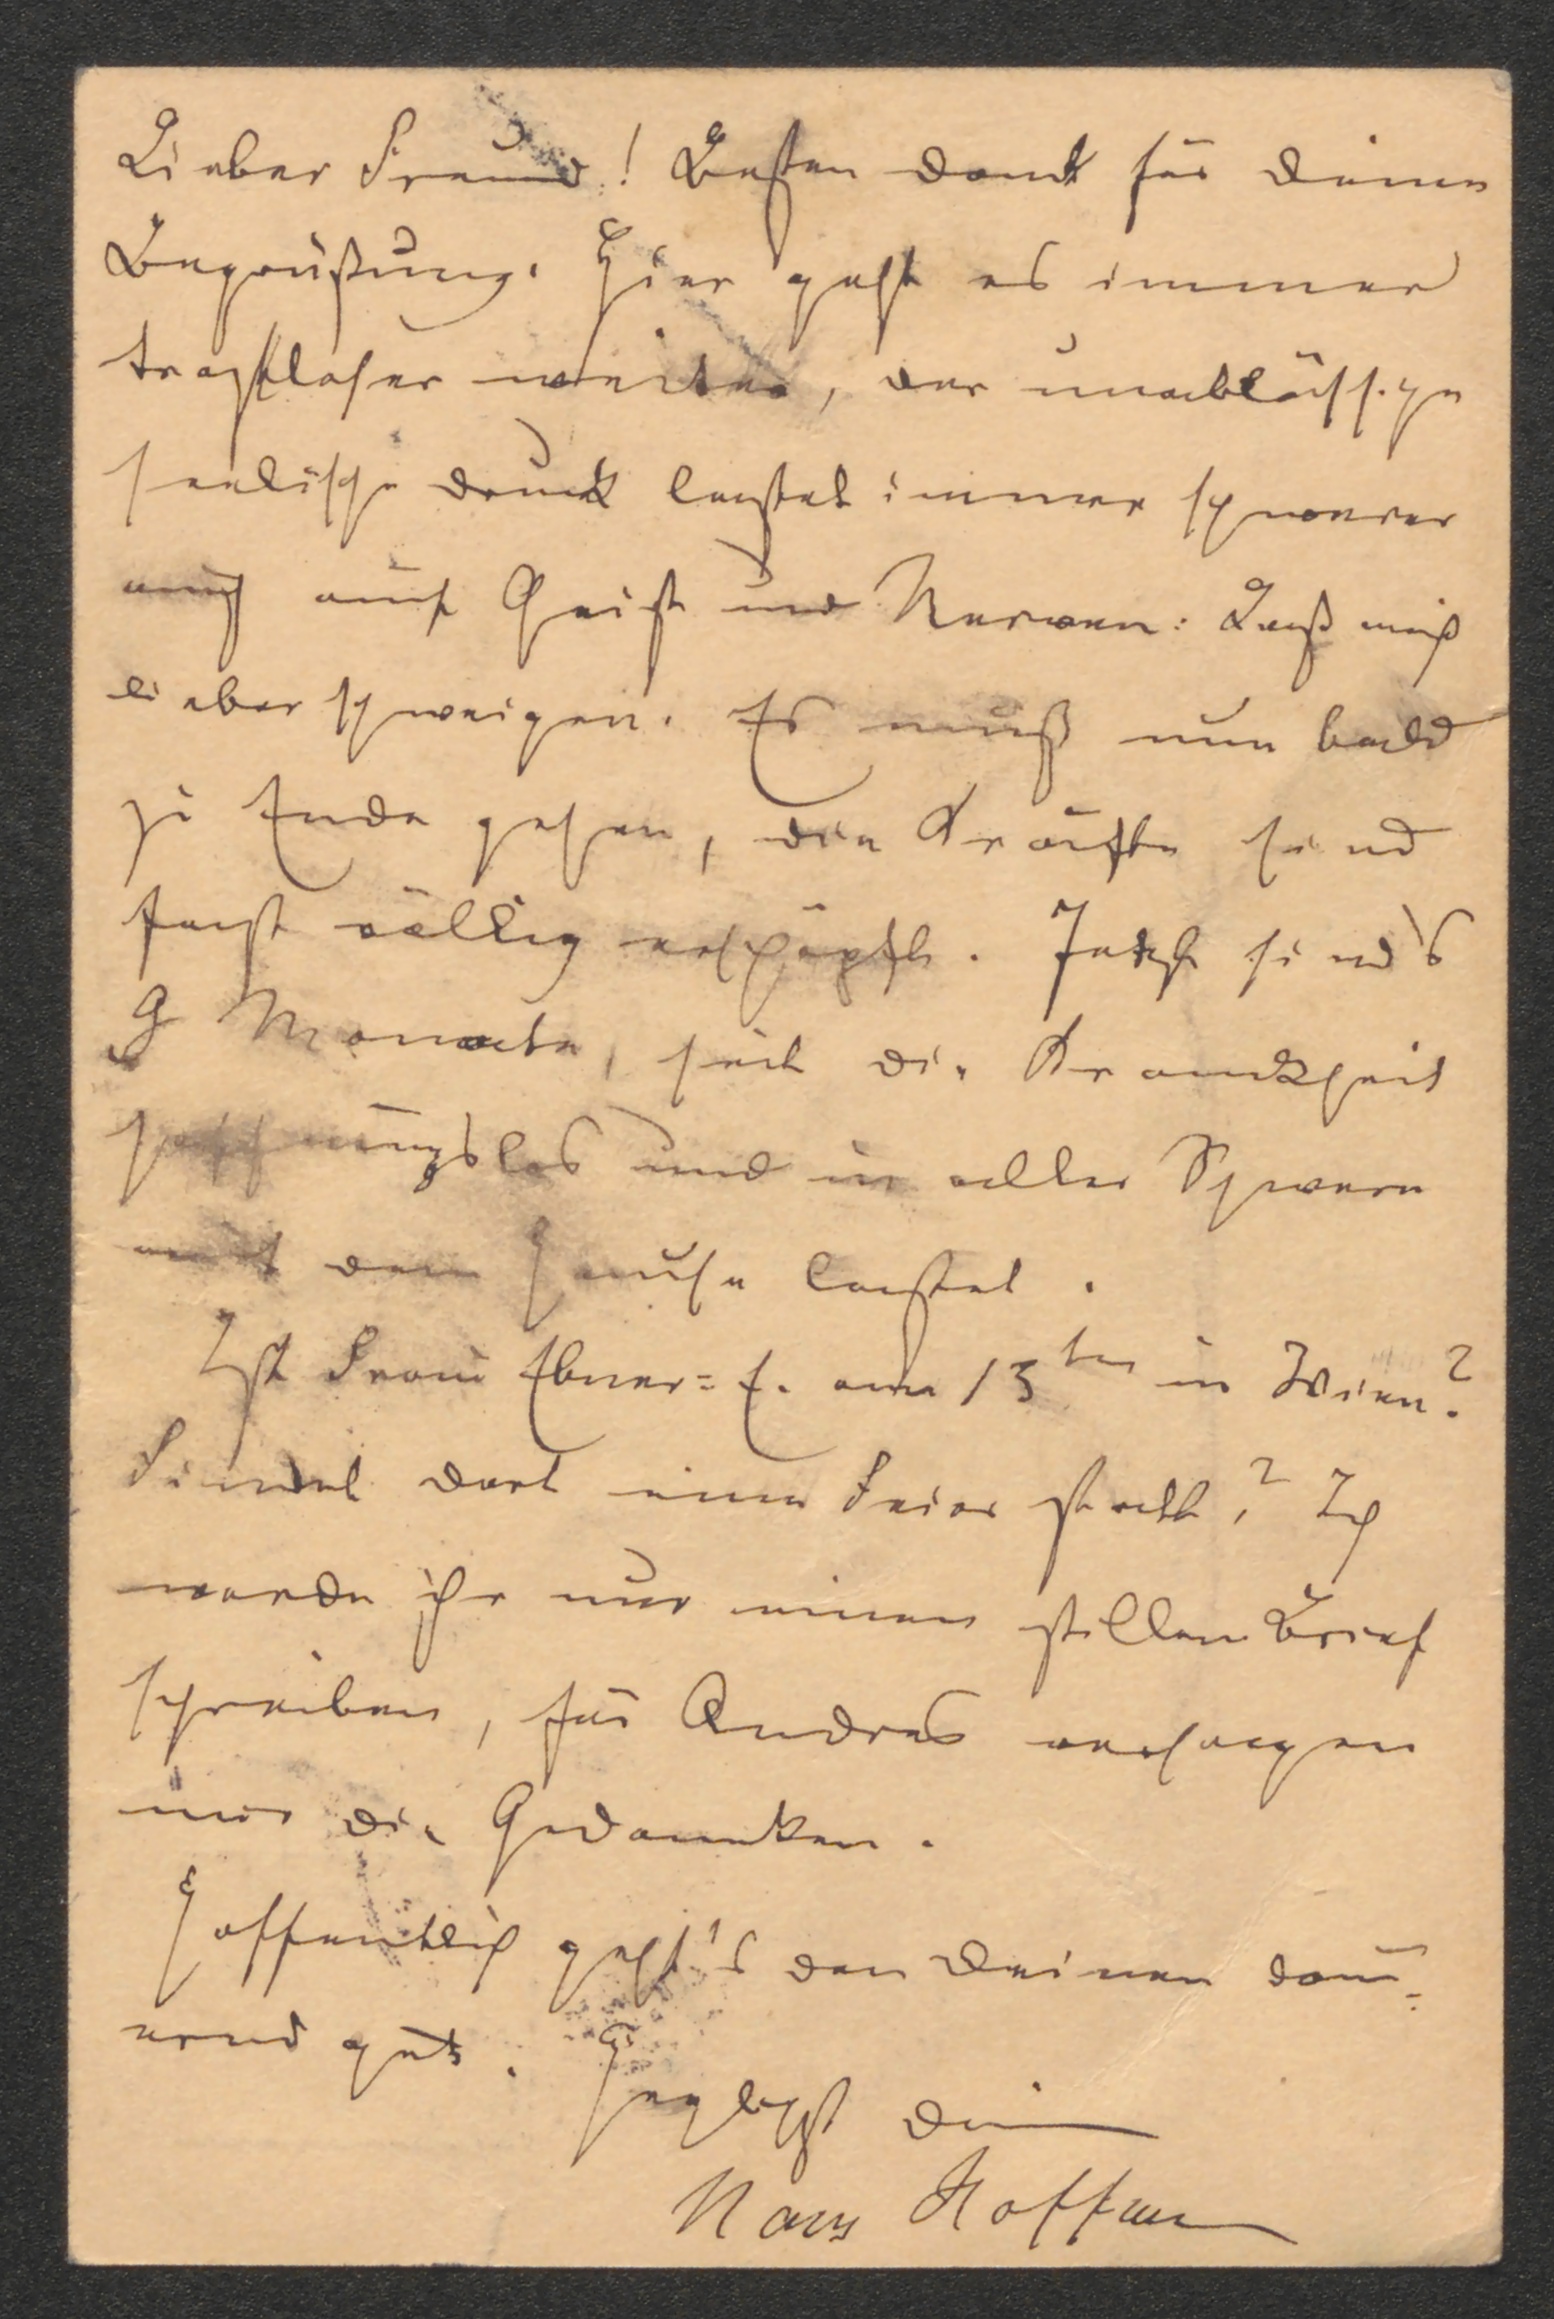 Lieber Freund! Besten Dank für Deine
Begrüßung. Hier geht es immer
trostloser weiter, der unablässige
seelische Druck lastet immer schwerer
auch auf Geist und Nerven: Laß mich
lieber schweigen. Es muß nun bald
zu Ende gehen, die Kräfte sind
fast völlig erschöpft. Jetzt sind's
9 Monate, seit die Krankheit
hoffnungslos und in aller Schwere
auf dem Hause lastet.
Ist Frau Ebner=E. am 13ten in Wien?
Findet dort eine Feier statt? Ich
werde ihr nur einen stillen Brief
schreiben, für Andres versagen
mir die Gedanken.
Hoffentlich geht's den Deinen dau=
ernd gut. Herzlichst Dein
Hans Hoffmann